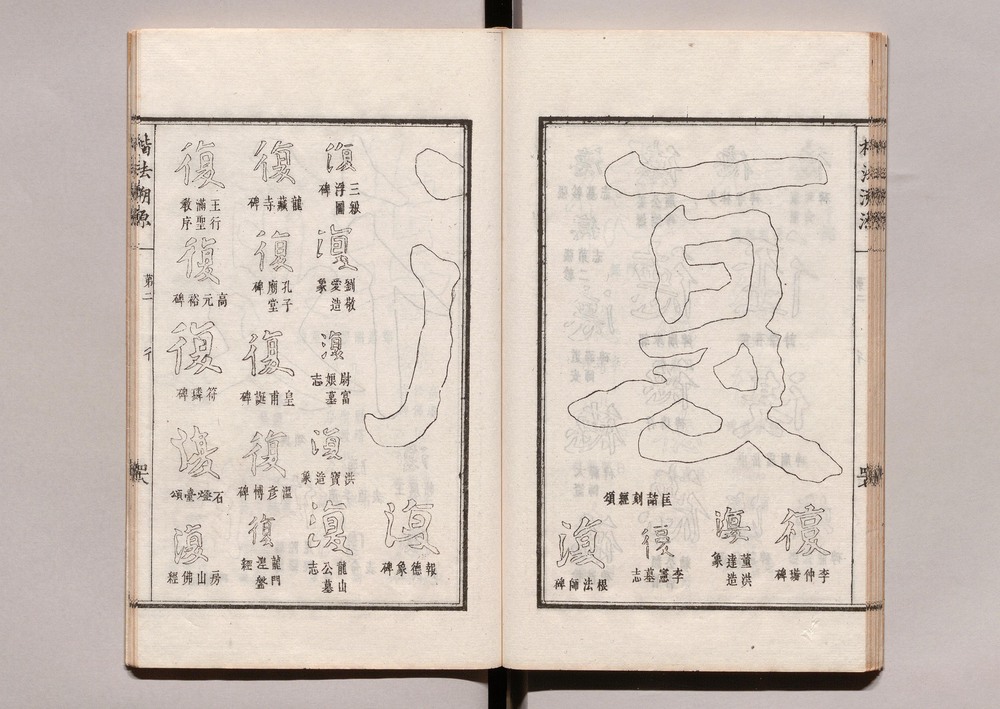 復
匡喆刻經頌
復
李仲璇碑
復
董洪達造象
復
李憲墓志
復
根法師碑
復
報德象碑
復
三級浮圖碑
復
劉敬愛造象
復
尉富娘墓志
復
洪寶造象
復
龍山公墓志
復
龍藏寺碑
復
孔子廟堂碑
復
皇甫誕碑
復
溫彥博碑
復
龍門涅槃經
復
王行滿聖教序
復
高元裕碑
復
符璘碑
復
石燈臺頌
復
房山佛經
楷法溯源
第二
彳